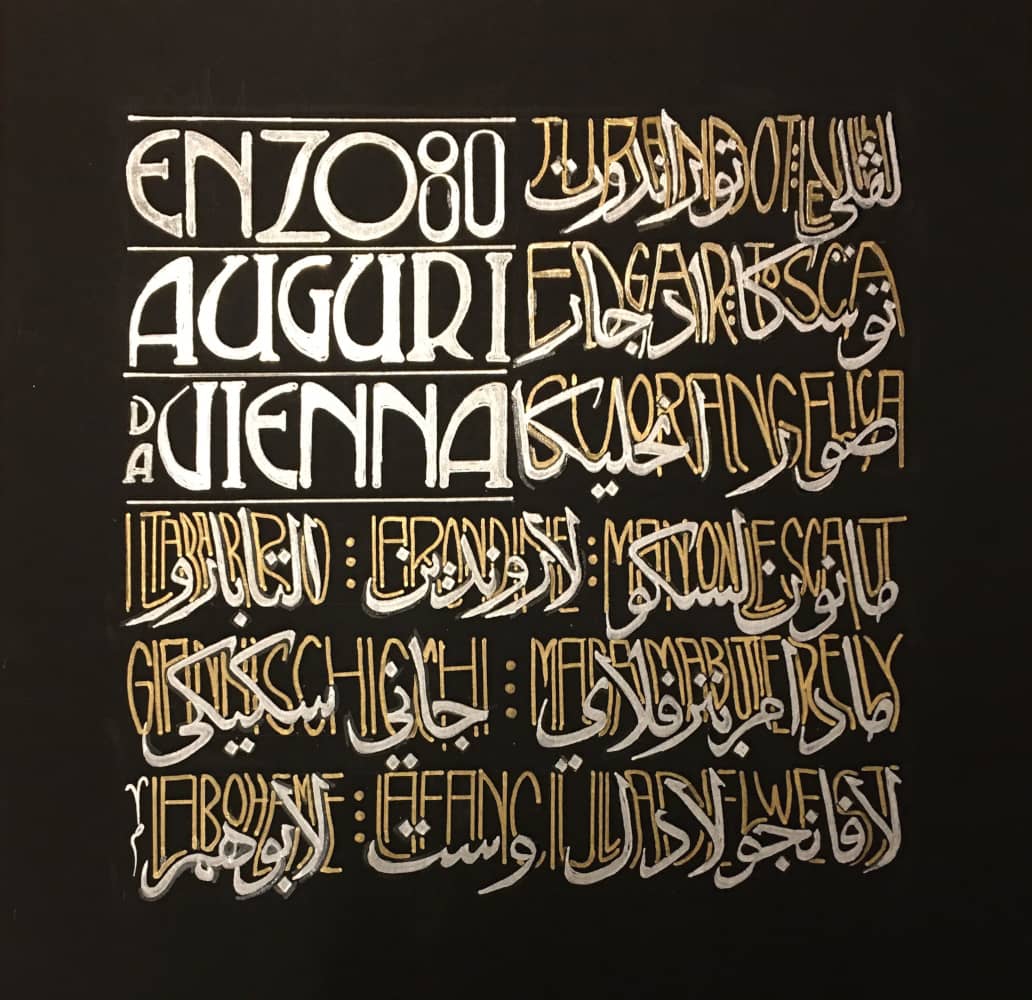 ENZO 80
AUGURI
DA VIENNA
TURANDOT : LE VILLI
توراندوت
EDGAR : TOSCA
توسكا ادجار
SUOR ANGELICA
صور انجليكا
IL TABARRO : LA RONDINE : MANON LESCAUT
مانون لسكو لاروندين التابارو
GIANNI SCHICCHI : MADAMA BUTTERFLY
مادام بترفلاي جاني سكيكي
LA BOHEME : LA FANCIULLA DEL WEST
لافانجولا دال وست لابوهم